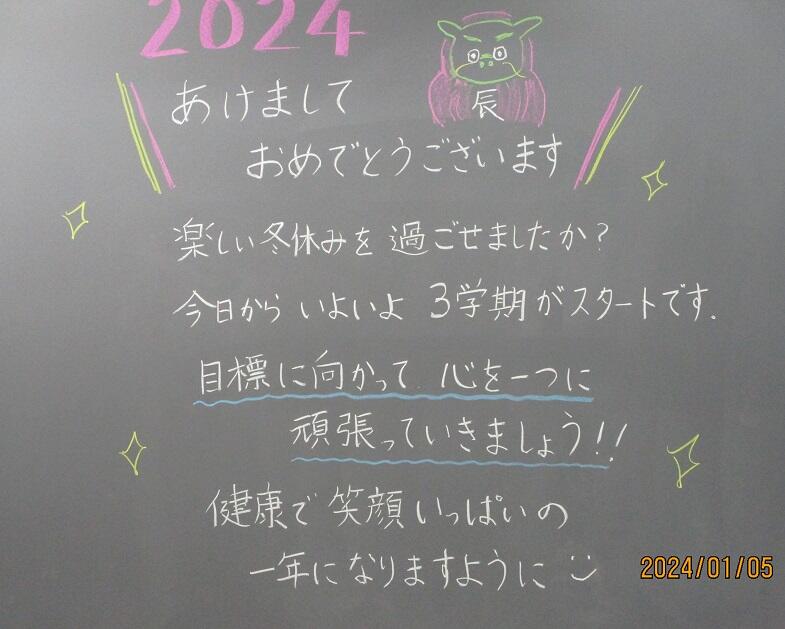 2024
辰
あけまして
おめでとうございます
楽しい冬休みを過ごせましたか?
今日から いよいよ 3学期がスタートです.
目標に向かって 心を一つに
頑張っていきましょう!!
健康で笑顔いっぱいの
一年になりますように
2024/01/05